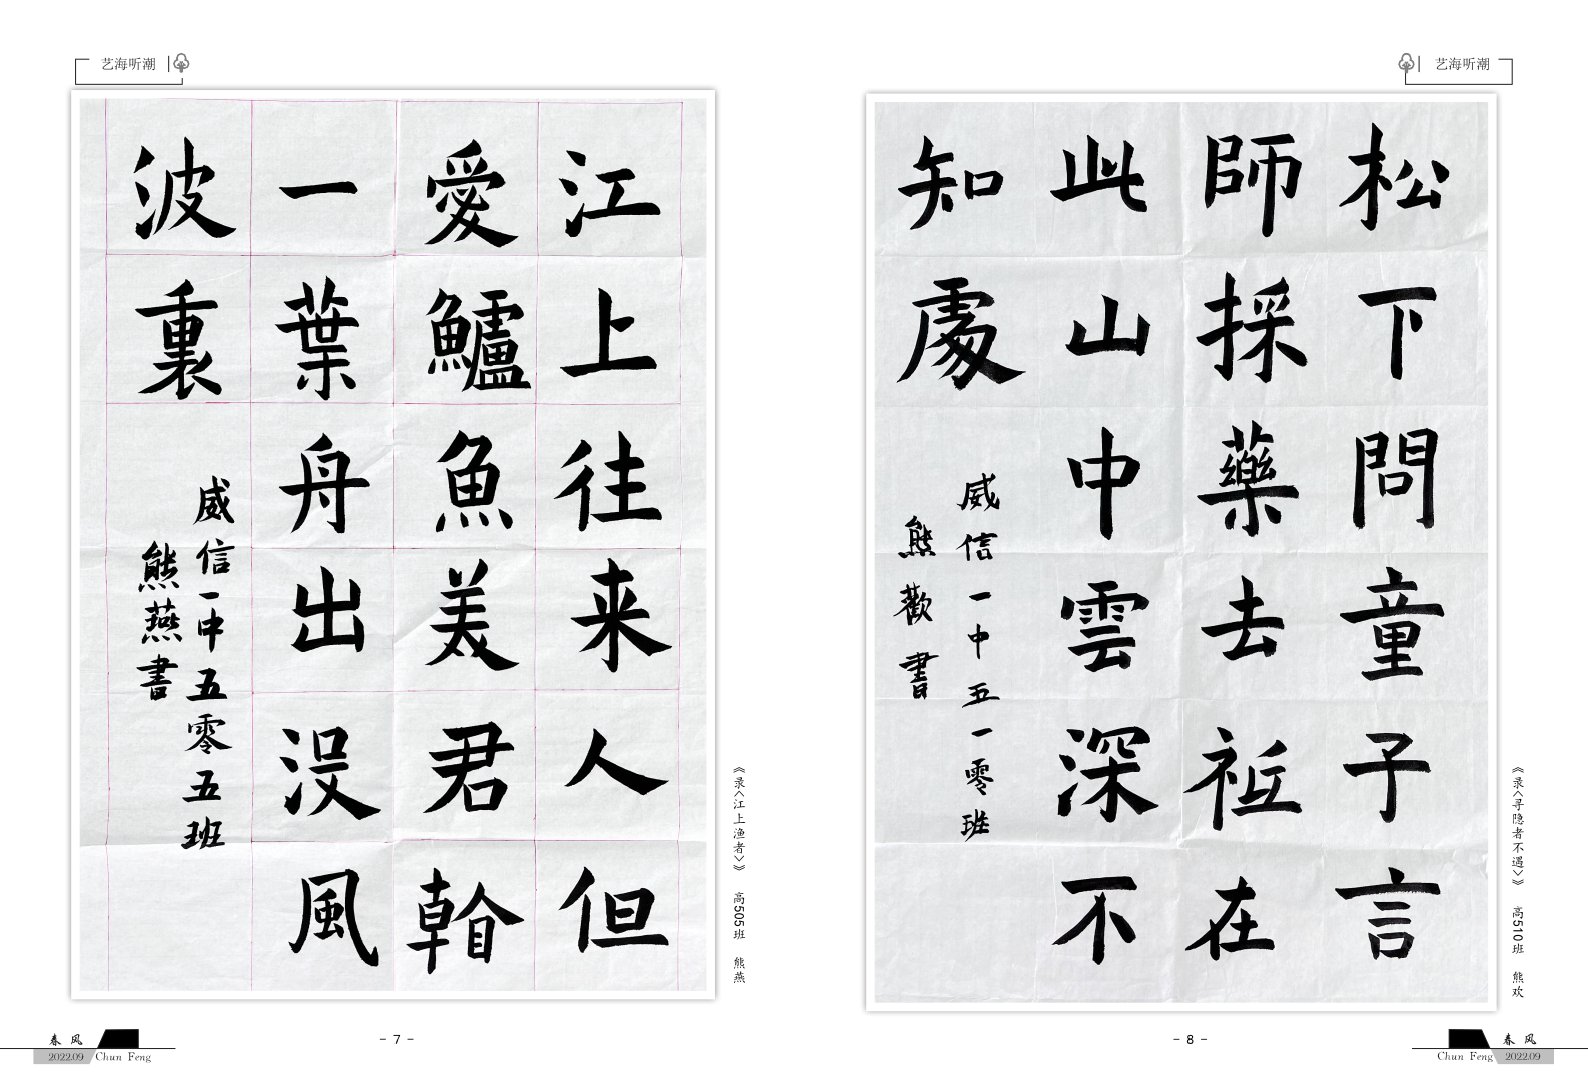 艺海听潮
江上往来人但
愛鱸魚美君
一葉舟出没風
波裏
威信一中五零五班
熊燕書
《录<江上渔者>》 高505班 熊燕
春风
2022.09 Chun Feng
- 7 -
艺海听潮
松下問童子言
師採藥去祗在
此山中雲深不
知處
威信一中五一零班
熊歡書
《录<寻隐者不遇>》 高510班 熊欢
- 8 -
春风
Chun Feng 2022.09